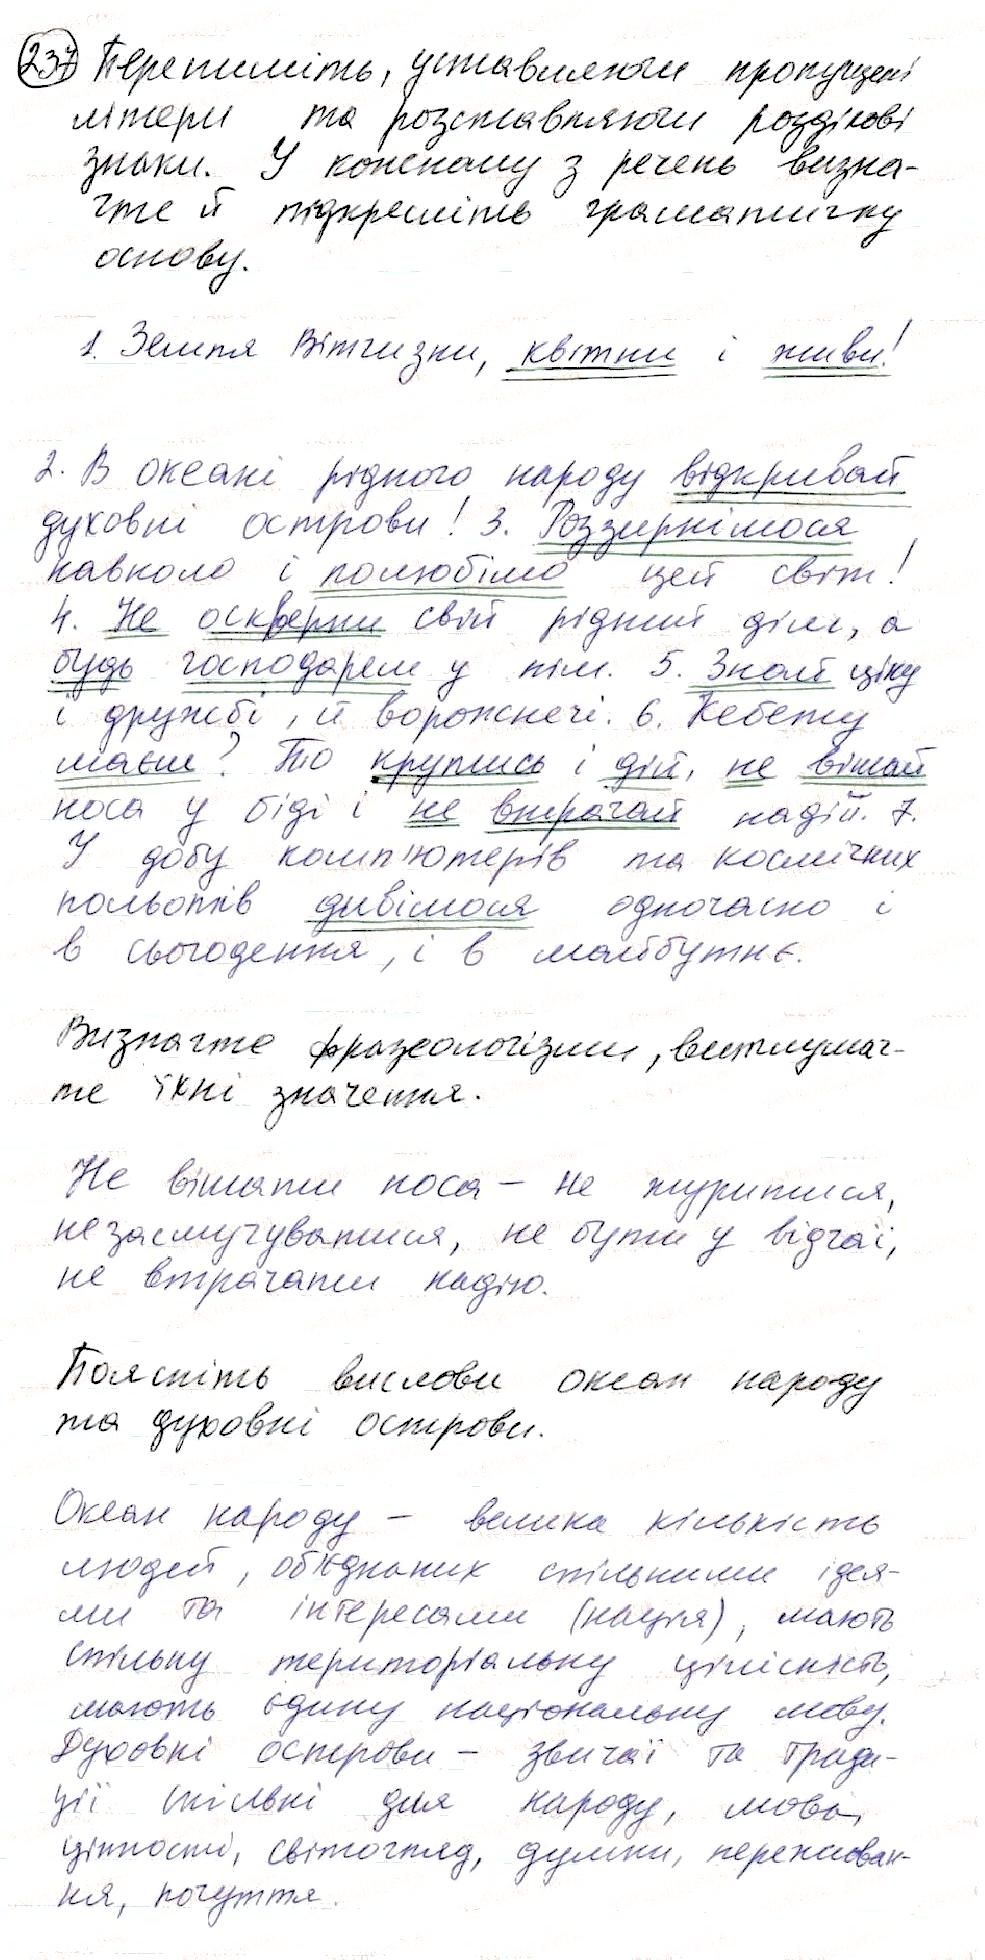 237 Перепишіть, уставляючи пропущені
літери та розставляючи розділові
знаки. У кожному з речень визна-
чте й підкресліть граматичну
основу.
1. Земля Вітчизни, квітни і живи!
2. В океані рідного народу відкривай
духовні острови! 3. Роззирнімося
навколо і полюбімо цей світ!
4. Не оскверни свій рідний дім, а
будь господарем у нім. 5. Знай ціну
і дружбі, й ворожнечі. 6. Кебету
маєш? То крутись і дій, не вішай
носа у біді і не втрачай надій. 7.
У добу комп'ютерів та космічних
польотів дивімося одночасно і
в сьогодення, і в майбутнє.
Визначте фразеологізми, витлумач-
те їхні значення.
Не вішати носа – не журитися,
не засмучуватися, не бути у відчаї,
не втрачати надію.
Поясніть вислови океан народу
та духовні острови.
Океан народу – велика кількість
людей, об'єднаних спільними ідея-
ми та інтересами (нація), мають
спільну територіальну цілісність,
мають єдину національну мову.
Духовні острови – звичаї та тради-
ції спільні для народу, мова,
цінності, світогляд, думки, переживан-
ня, почуття.